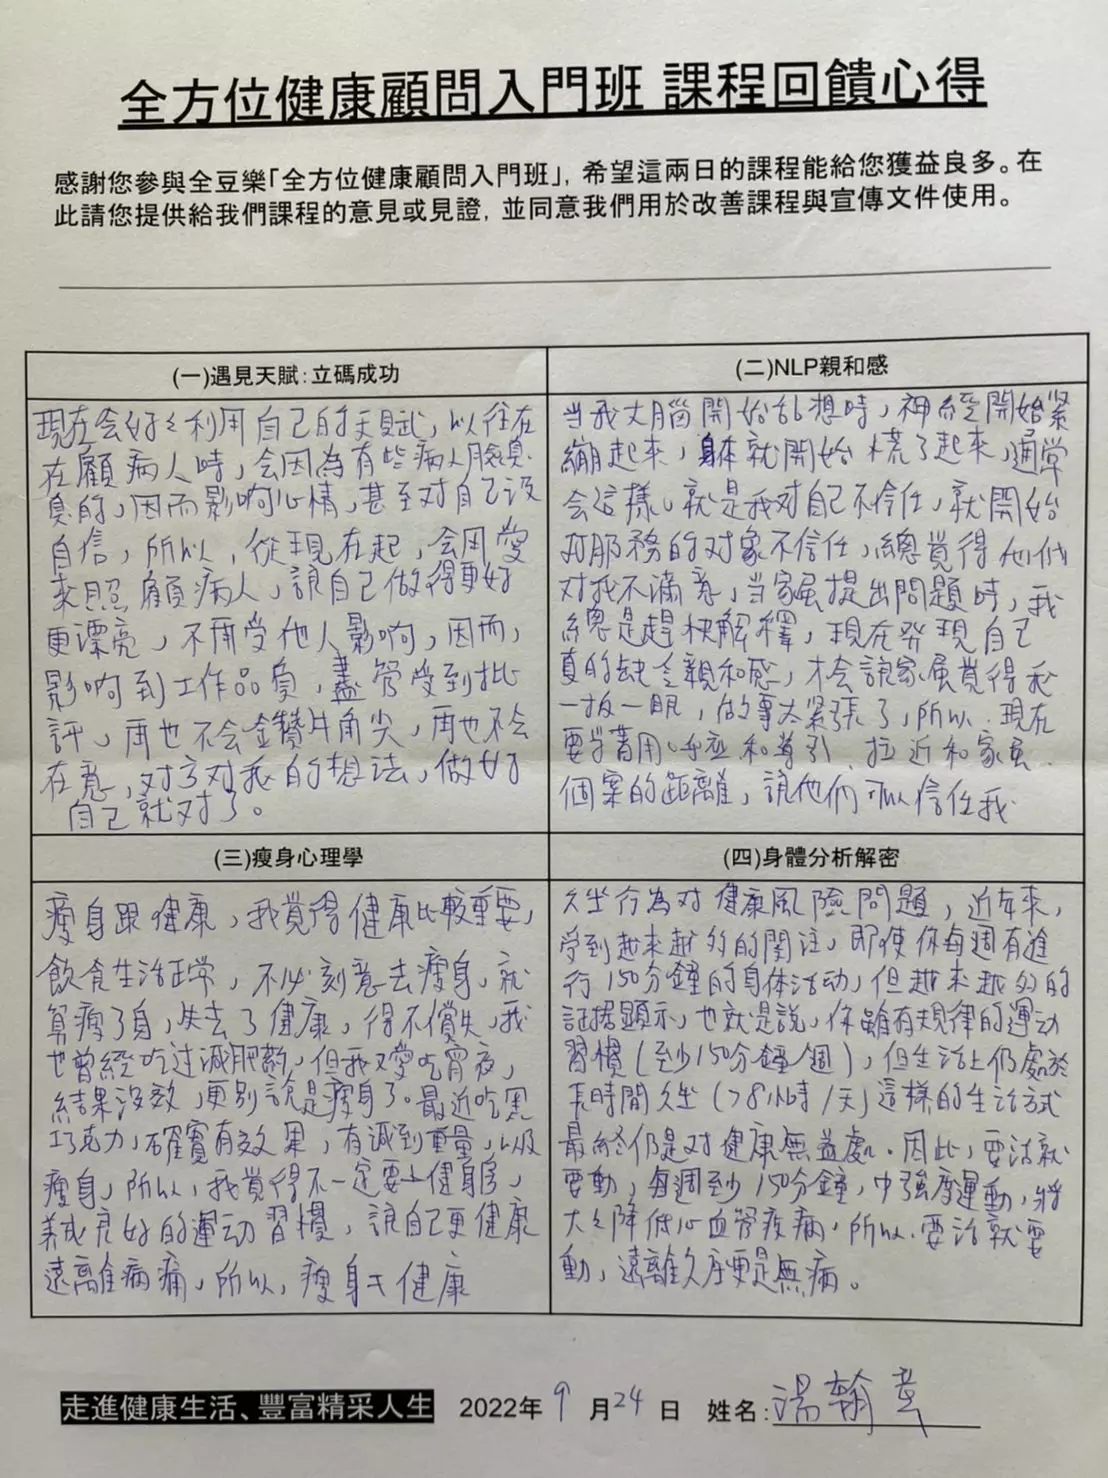 全方位健康顧問入門班 課程回饋心得
感謝您參與全豆樂「全方位健康顧問入門班」，希望這兩日的課程能給您獲益良多。在
此請您提供給我們課程的意見或見證，並同意我們用於改善課程與宣傳文件使用。
(一)遇見天賦：立碼成功
現在会好々利用自己的天賦，以往在
在顧病人時，会因為有些病人臉臭
臭的，因而影响心情，甚至对自己没
自信，所以，從現在起，会用愛
來照顧病人，讓自己做得更好
更漂亮，不再受他人影响，因而，
影响到工作品質，儘管受到批
評，再也不会鑽牛角尖，再也不会
在意，对方对我的想法，做好
自己就对了。
(二)NLP親和感
当我大腦開始乱想時，神經開始緊
繃起來，身体就開始慌了起來，通常
会這樣，就是我对自己不信任，就開始
对服務的对象不信任，總覺得他们
对我不滿意，当家屬提出問題時，我
總是趕快解釋，現在発現自己
真的缺乏親和感，才会讓家屬覺得我
一板一眼，做事太緊張了，所以，現在
要学着用呼应和導引，拉近和家屬、
個案的距離，讓他們可以信任我
(三)瘦身心理學
瘦身跟健康，我覺得健康比較重要，
飲食生活正常，不必刻意去瘦身，就
算瘦了身，失去了健康，得不償失，我
也曾經吃过減肥藥，但我又愛吃宵夜，
結果没效，更別說是瘦身了。最近吃黑
巧克力，確實有效果，有減到重量，以及
瘦身，所以，我覺得不一定要上健身房，
養成良好的運动習慣，讓自己更健康
遠離病痛，所以，瘦身＋健康
(四)身體分析解密
久坐行為对健康風險問題，近年來，
受到越來越多的関注，即使你每週有進
行150分鐘的身体活动，但越來越多的
証据顯示，也就是說，你雖有規律的運动
習慣(至少150分鐘/週)，但生活上仍處於
長時間久坐(>8小時/天)這樣的生活方式
最終仍是对健康無益處。因此，要活就
要動，每週至少150分鐘，中強度運動，將
大々降低心血管疾病，所以，要活就要
動，遠離久座更是無病。
走進健康生活、豐富精采人生 2022年 9 月 24 日 姓名：湯翰